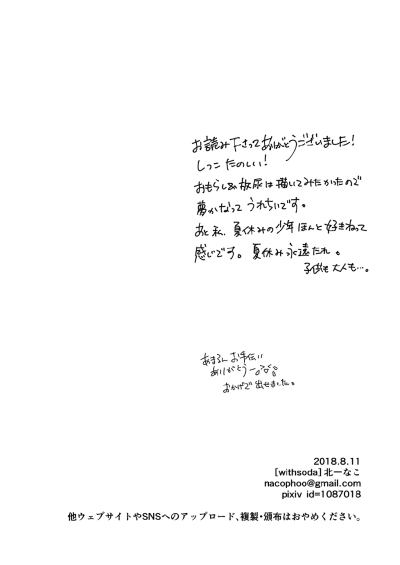 お読み下さってありがとうございました!
しっこ たのしい!
おもらし&放尿は描いてみたかったので
夢かなって うれちいです。
あと私、夏休みの少年ほんと好きねって
感じです。夏休み永遠たれ。
子供も大人も…。
お手伝い
ありがとうー
おかげで出せました。
2018.8.11
[withsoda] 北一なこ
nacophoo@gmail.com
pixiv id=1087018
他ウェブサイトやSNSへのアップロード、複製・頒布はおやめください。